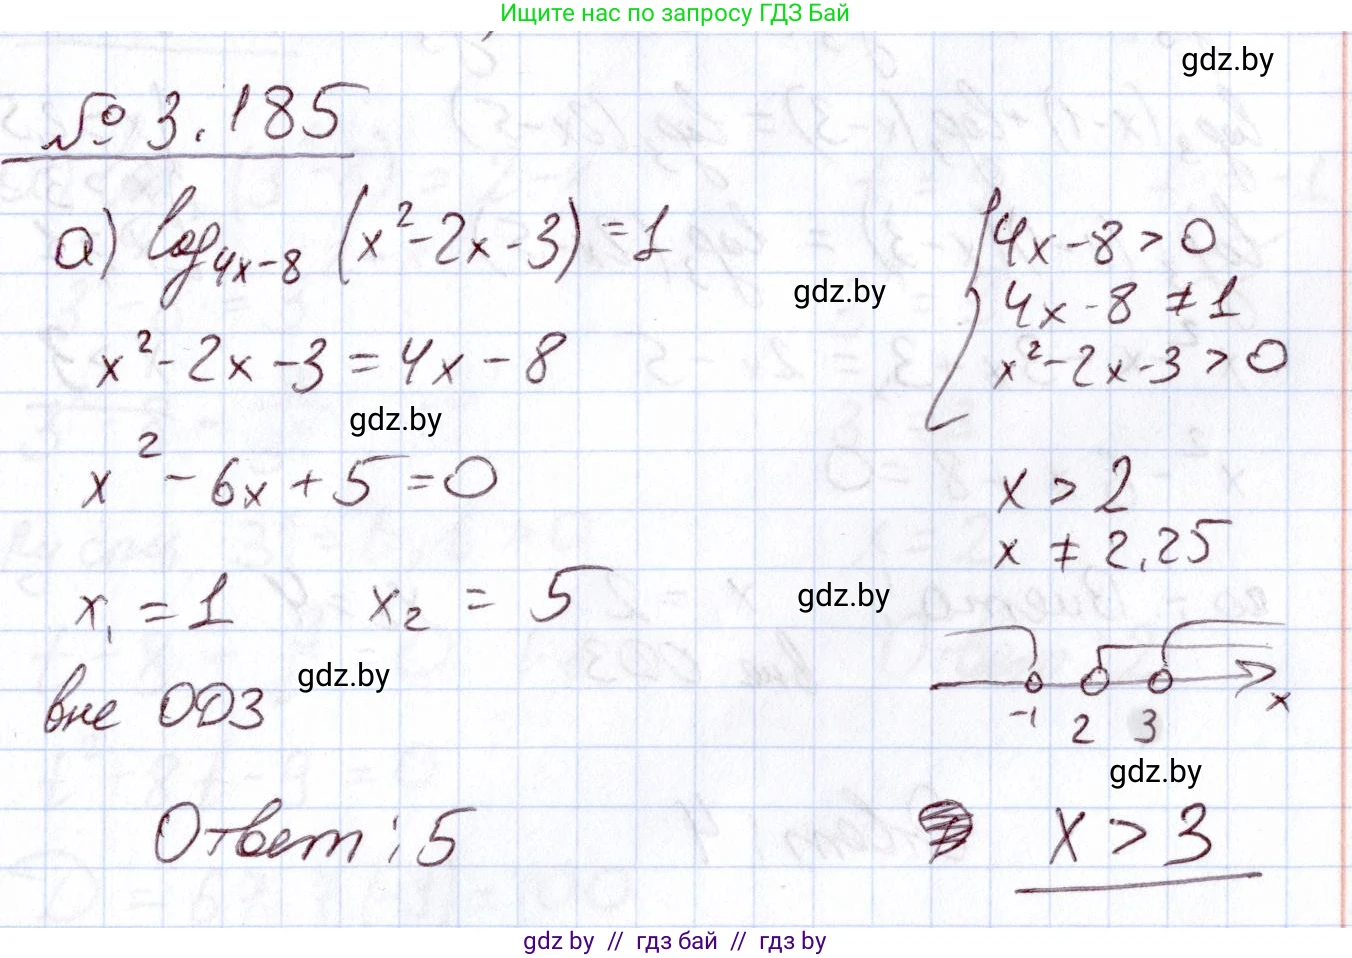 Ищите нас по запросу ГДЗ Бай
gdz.by
№ 3.185
а) log₄ₓ₋₈ (x² - 2x - 3) = 1
4x - 8 > 0
gdz.by
4x - 8 ≠ 1
x² - 2x - 3 = 4x - 8
x² - 2x - 3 > 0
gdz.by
x² - 6x + 5 = 0
x > 2
x ≠ 2,25
x₁ = 1 x₂ = 5
gdz.by
gdz.by
вне ОДЗ
-1 2 3 x
gdz.by
Ответ: 5
x > 3
gdz by // гдз бай // гдз by